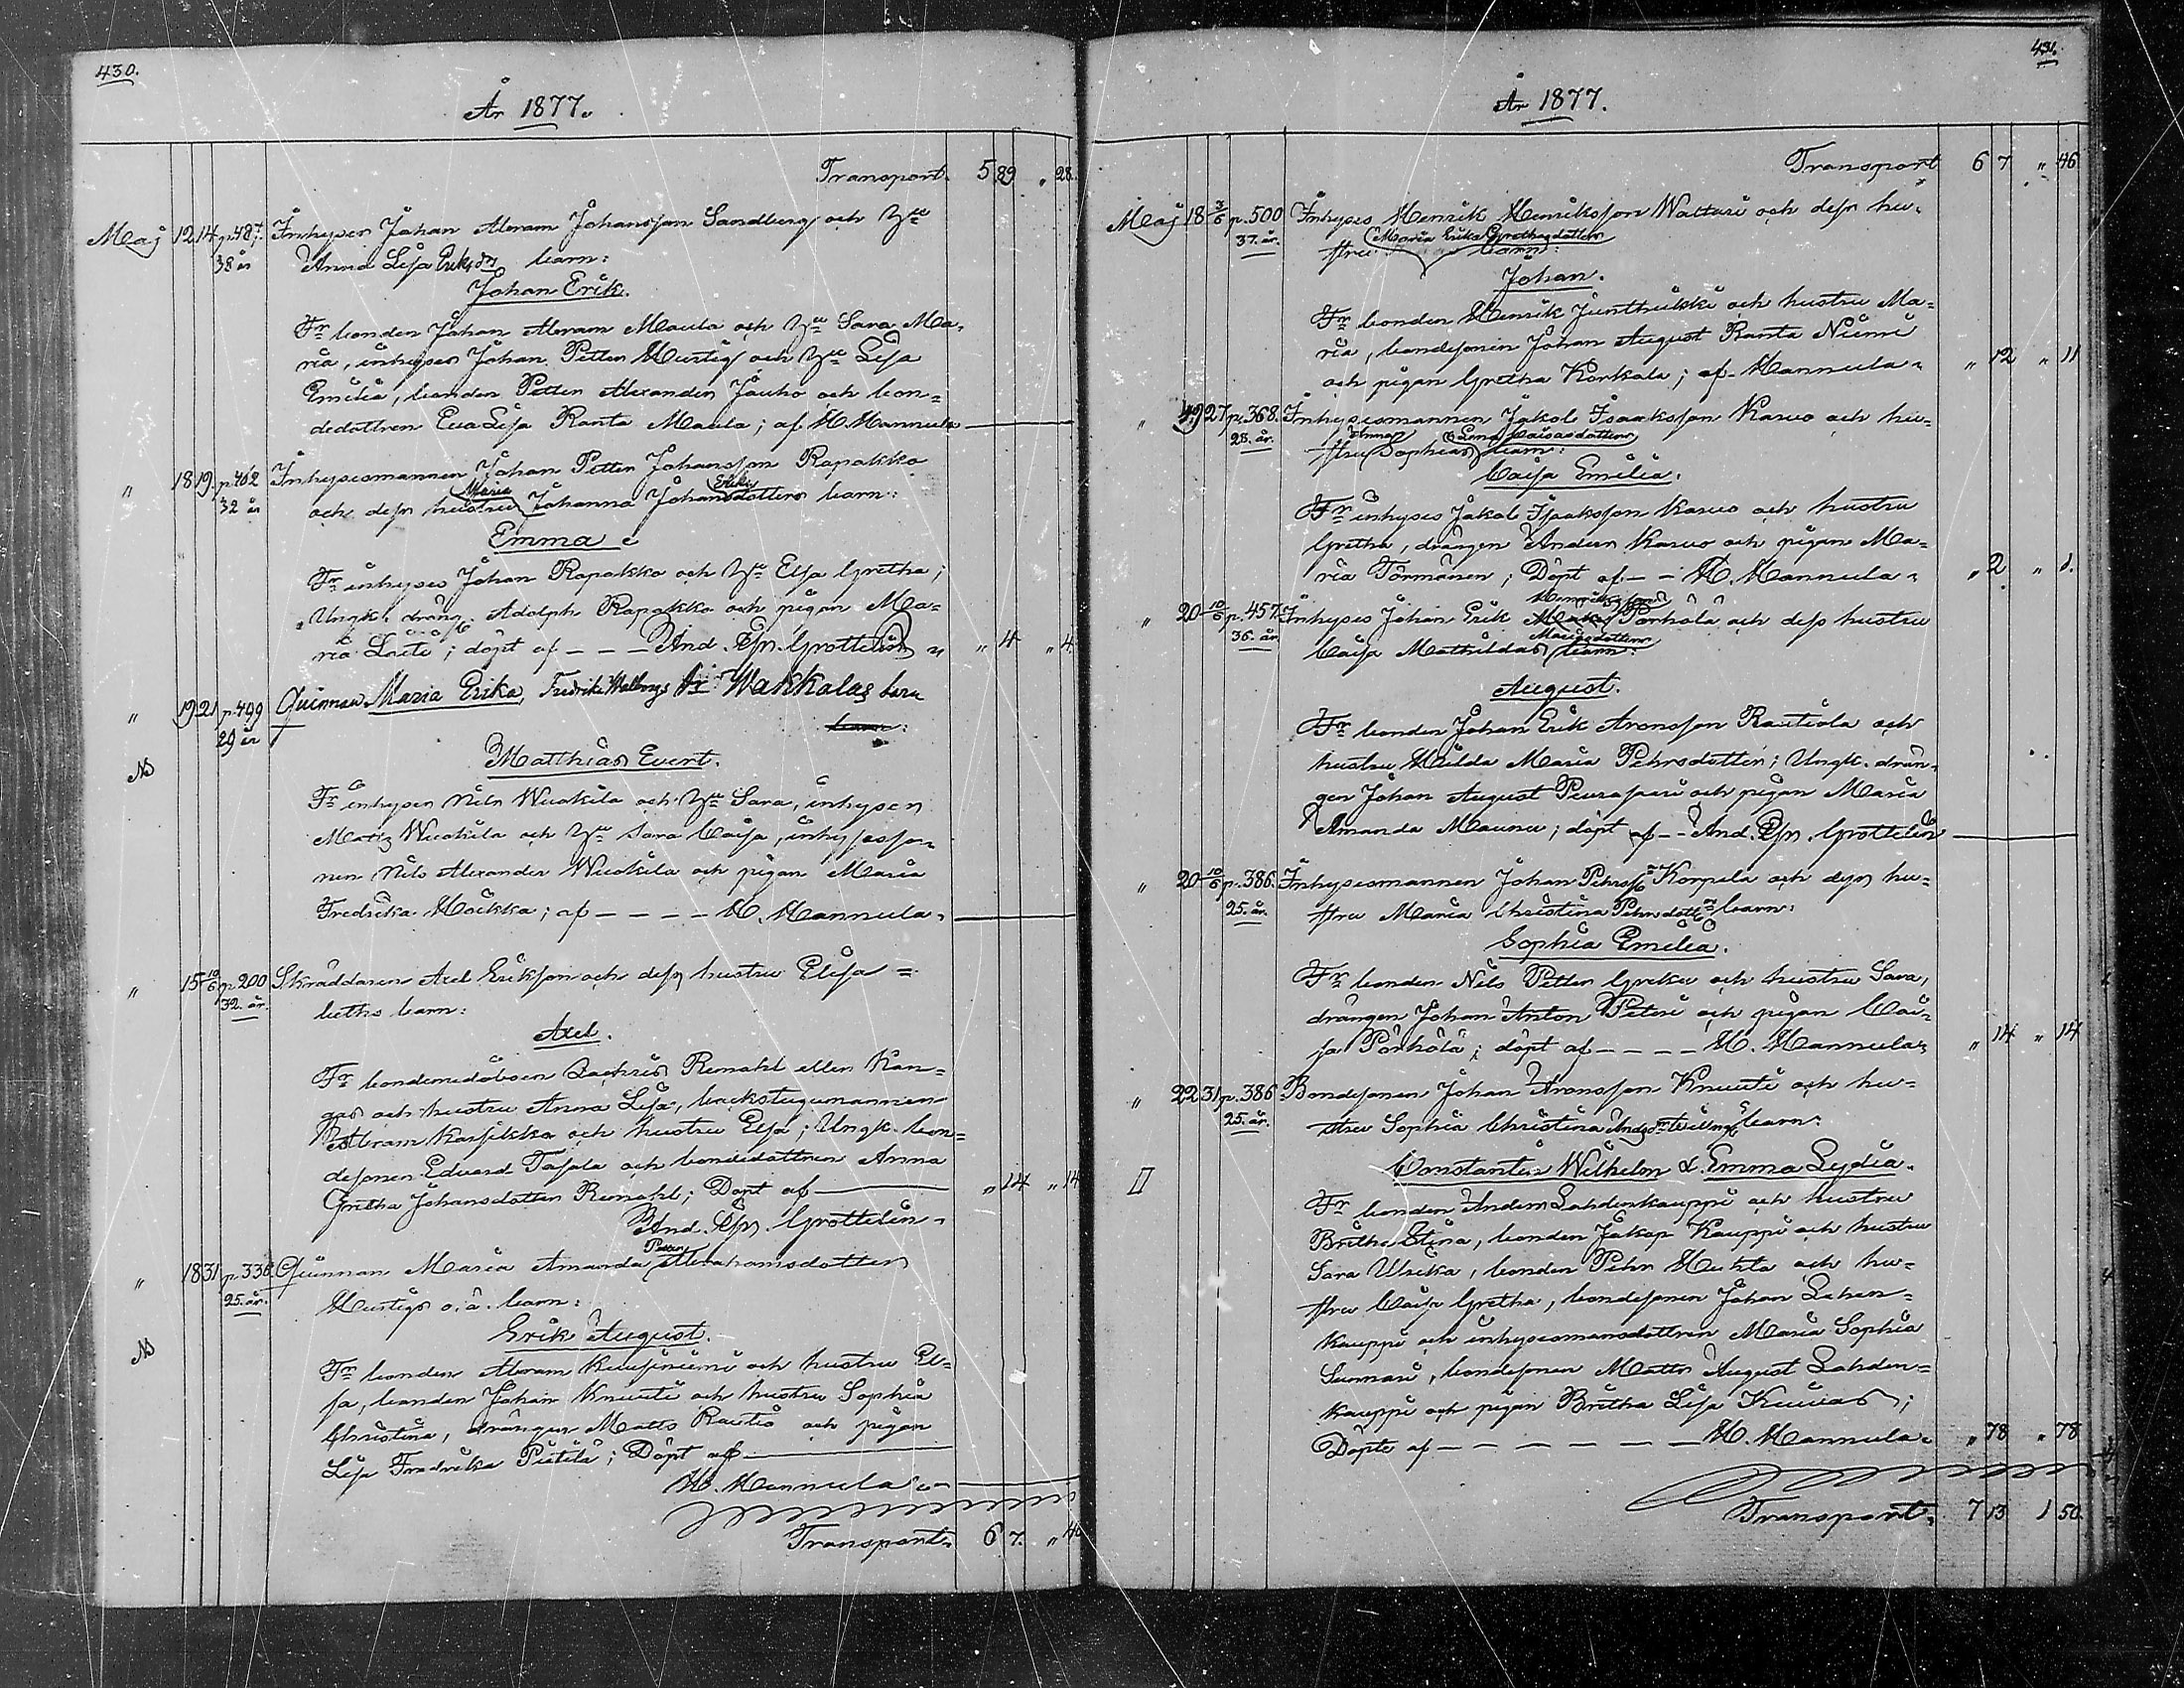 430.
År 1877.
Transport. 5 89 " 28.
Maj 12 14 p.487. Inhyses Johan Abram Johansson Sandberg och H:u
38 år Anna Lisa Eriksdr barn:
Johan Erik.
Fr bonden Johan Abram Maula och H:u Sara Ma-
ria, inhyses Johan Petter Hurtig och H:u Lisa
Emilia, bonden Petter Alexander Jauho och bon-
dedottren Eva Lisa Ranta Maula; af H. Mannula
" 18 19. p.462 Inhysesmannen Johan Petter Johansson Rapakko
32 år och dess hustru Maria Johanna Johan Eriksdotters barn:
Emma
Fr inhyses Johan Rapakko och H:u Elsa Gretha;
Ungk. dräng. Adolph Rapakko och pigan Ma-
ria Laiti; döpt af – – – And. Esn. Grottelin " 4 " 4
" 19 21 p.499 Qvinnan Maria Erika, Fredrika Wakkalas
29 år barn:
Matthias Evert.
No
Fr inhyses Nils Wuokila och H:u Sara, inhyses
Matts Wuokila och H:u Sara Caisa, inhysesso-
nen Nils Alexander Wuokila och pigan Maria
Fredrika Hoikka; af – – – – H. Mannula.
" 15 10/6 p.200 Skräddaren Axel Eriksson och dess hustru Elisa-
32. år. beths barn:
Axel.
Fr bondemedåboen Zachris Remahl eller Kan-
gas och hustru Anna Lisa, backstugumannen
Abram Karsikko och hustru Elsa; Ungk. bon-
desonen Eduard Tapala och bondedottren Anna
Gretha Johansdotter Remahl; Döpt af " 14 " 14
And. Esn. Grottelin.
" 18 31 p.336 Qvinnan Maria Amanda Petter Abrahamsdotter
25. år. Hurtigs o.ä. barn:
Erik August.
No
Fr bonden Abram Kuusiniemi och hustru El-
sa, bonden Johan Knuuti och hustru Sophia
Christina, drängen Matts Rautio och pigan
Lisa Fredrika Pietilä; Döpt af
H. Mannula.
Transport. 6 7. "
431.
År 1877.
Transport 6 7 " 46
Maj 18 3/6 p.500 Inhyses Henrik Henriksson Watturi och dess hu-
37. år. stru Maria Erika Grethasdotters barn:
Johan.
Fr bonden Henrik Junttikki och hustru Ma-
ria, bondesonen Johan August Ranta Niemi
och pigan Gretha Korkala; af Mannula. " 12 " 11
" 19 27 p.368. Inhysesmannen Jakob Isaaksson Karvo och hu-
28. år. stru Anna Sophias Lena Caisasdotters barn:
Caisa Emilia.
Fr inhyses Jakob Isaaksson Karvo och hustru
Gretha, drängen Anders Karvo och pigan Ma-
ria Törmänen; Döpt af – – H. Mannula. " 2 " 1.
" 20 10/6 p.457. Inhyses Johan Erik Henriksson Pörhölä och dess hustru
36. år. Caisa Mathildas Mariasdotters barn:
August.
Fr bonden Johan Erik Aronsson Rautiola och
hustru Hilda Maria Pehrsdotter; Ungk. drän-
gen Johan August Peurasari och pigan Maria
Amanda Maunu; döpt af – – And. Esn. Grottelin
" 20 10/6 p.386. Inhysesmannen Johan Pehrsson Korpela och dess hu-
25. år. stru Maria Christina Pehrsdotters barn:
Sophia Emilia.
Fr bonden Nils Petter Greku och hustru Sara,
drängen Johan Anton Peteri och pigan Cai-
sa Pörhölä; döpt af – – – – H. Mannula. " 14 " 14
" 22 31 p.386 Bondesonen Johan Aronsson Knuuti och hu-
25. år. stru Sophia Christina Andsdr tvilling barn:
Constantin Wilhelm & Emma Lydia.
Fr bonden Anders Lahdenkauppi och hustru
Britha Stina, bonden Jakop Kauppi och hustru
Sara Ulrika, bonden Pehr Huhta och hu-
stru Caisa Gretha, bondesonen Johan Lahden-
kauppi och inhysesmansdottren Maria Sophia
Sunnari, bondesonen Matts August Lahden-
kauppi och pigan Britha Lisa Kuivas;
Döpte af – – – – – – H. Mannula. " 78 " 78
Transport. 7 13 1 50.